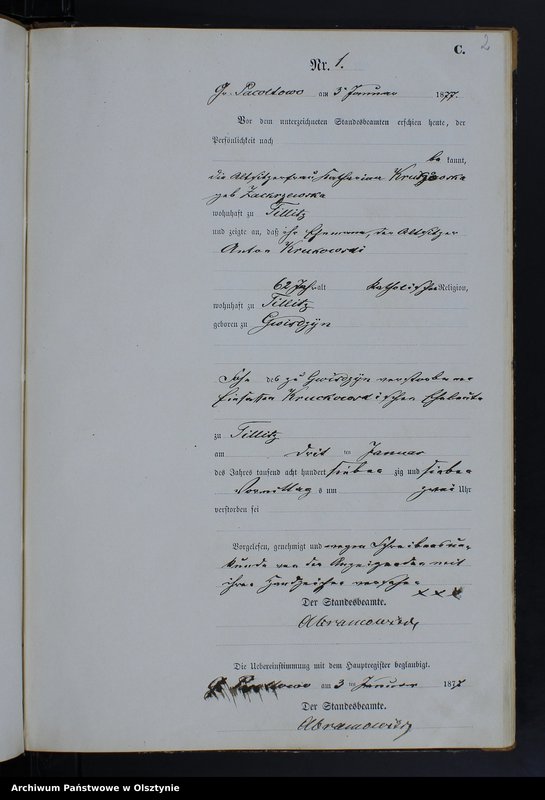 C.
2
Nr. 1.
Gr. Pacoltowo am 3ten Januar 1877.
Vor dem unterzeichneten Standesbeamten erschien heute, der
Persönlichkeit nach
be kannt,
die Altsitzerfrau Katharina
geb Zakrzewska
wohnhaft zu Tillitz
und zeigte an, daß ihr Ehemann, der Altsitzer
Anton Krukowski
62 Jahr alt katholischer Religion,
wohnhaft zu Tillitz
geboren zu Gwisdzyn
Sohn des zu Gwisdzyn verstorbenen
Einsassen Kruckowskischen Eheleute
zu Tillitz
am dritten Januar
des Jahres tausend acht hundert siebenzig und sieben
Vormittags um zwei Uhr
verstorben sei
Vorgelesen, genehmigt und wegen Schreibensun-
kunde von der Anzeigenden mit
ihren Handzeichen versehen
x x x
Der Standesbeamte.
Abramowski
Die Uebereinstimmung mit dem Hauptregister beglaubigt.
Gr. Pacoltowo am 3ten Januar 1877
Der Standesbeamte.
Abramowski
Archiwum Państwowe w Olsztynie